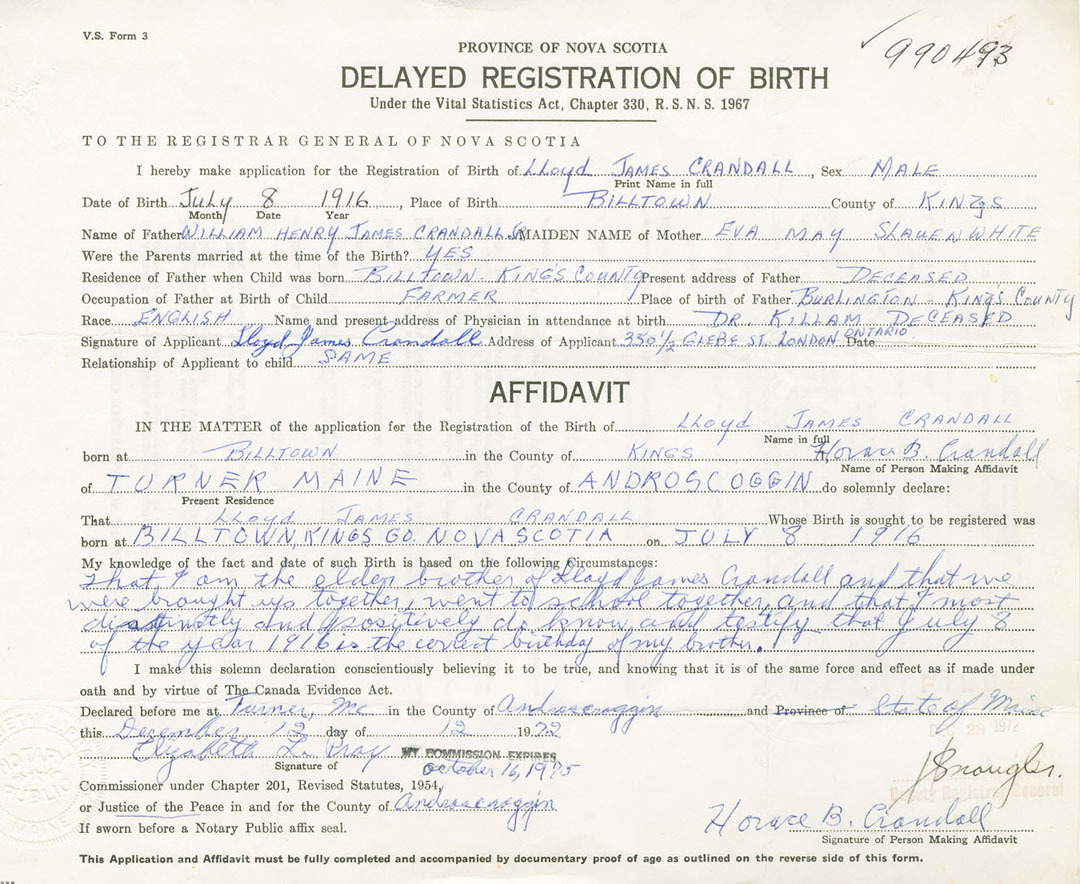 V.S. Form 3
990493
PROVINCE OF NOVA SCOTIA
DELAYED REGISTRATION OF BIRTH
Under the Vital Statistics Act, Chapter 330, R. S. N. S. 1967
TO THE REGISTRAR GENERAL OF NOVA SCOTIA
I hereby make application for the Registration of Birth of Lloyd JAMES CRANDALL, Sex MALE
Print Name in full
Date of Birth July 8 1916, Place of Birth BILLTOWN County of KINGS
Month Date Year
Name of Father WILLIAM HENRY JAMES CRANDALL SR MAIDEN NAME of Mother EVA MAY SLAUENWHITE
Were the Parents married at the time of the Birth? YES
Residence of Father when Child was born BILLTOWN - KING'S COUNTY Present address of Father DECEASED
Occupation of Father at Birth of Child FARMER Place of birth of Father BURLINGTON - KING'S COUNTY
Race ENGLISH Name and present address of Physician in attendance at birth DR. KILLAM DECEASED
Signature of Applicant Lloyd James Crandall Address of Applicant 350 1/2 GLEBE ST. LONDON ONTARIO Date
Relationship of Applicant to child SAME
AFFIDAVIT
IN THE MATTER of the application for the Registration of the Birth of LLoyd JAMES CRANDALL
Name in full
born at BILLTOWN in the County of KINGS Horace B. Crandall
Name of Person Making Affidavit
of TURNER MAINE in the County of ANDROSCOGGIN do solemnly declare:
Present Residence
That LLoyd JAMES CRANDALL Whose Birth is sought to be registered was
born at BILLTOWN, KINGS CO. NOVA SCOTIA on JULY 8 1916
My knowledge of the fact and date of such Birth is based on the following Circumstances:
That I am the elder brother of Lloyd James Crandall and that we
were brought up together, went to school together, and that I most
distinctly and positively do know and testify that July 8
of the year 1916 is the correct birthday of my brother.
I make this solemn declaration conscientiously believing it to be true, and knowing that it is of the same force and effect as if made under
oath and by virtue of The Canada Evidence Act.
Declared before me at Turner, Me in the County of Androscroggin and Province of State of Maine
this December 12 day of 12 19 72
DEC 28 1972
Elizabeth L. Pray MY COMMISSION EXPIRES
Signature of October 16, 1975
Commissioner under Chapter 201, Revised Statutes, 1954,
Deputy Registrar General
or Justice of the Peace in and for the County of Androscroggin
Horace B. Crandall
If sworn before a Notary Public affix seal.
Signature of Person Making Affidavit
NOTARY PUBLIC
MAINE
This Application and Affidavit must be fully completed and accompanied by documentary proof of age as outlined on the reverse side of this form.